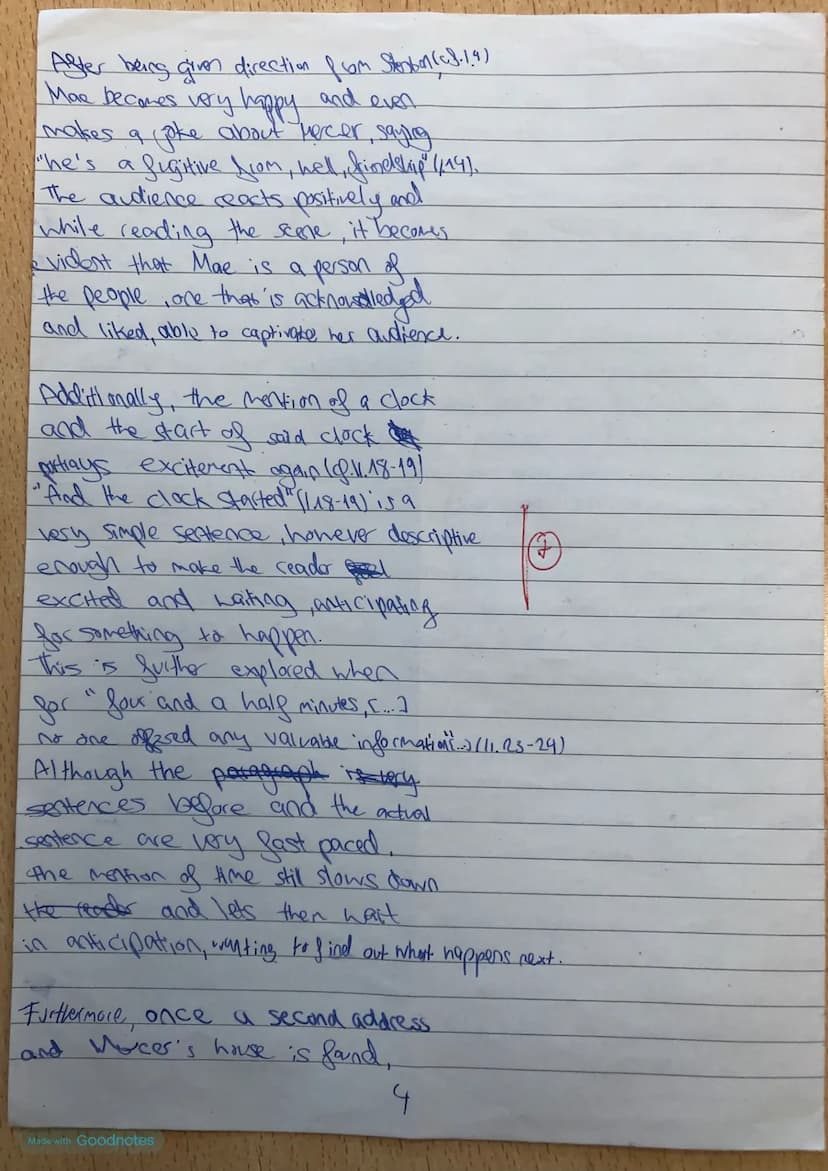 After being given direction from Stenton(cf.l.9)
Mae becomes very happy and even
makes a joke about Mercer, saying
"he's a fugitive from, well, friendship" (l.14).
The audience reacts positively and
while reading the scene, it becomes
evident that Mae is a person of
the people, one that is acknowledged
and liked, able to captivate her audience.
Additionally, the mention of a clock
and the start of said clock
portrays excitement again (cf.ll.18-19)
"And the clock started" (l.18-19) is a
very simple sentence, however descriptive
enough to make the reader
excited and waiting, anticipating
for something to happen.
+
This is further explored when
for "four and a half minutes, [...]
no one offered any valuable information"(...) (ll.23-24)
Although the paragraph is very
sentences before and the actual
sentence are very fast paced,
the mention of time still slows down
the reader and lets then wait
in anticipation, wanting to find out what happens next.
Furthermore, once a second address
and Mercer's house is found,
4
Made with Goodnotes